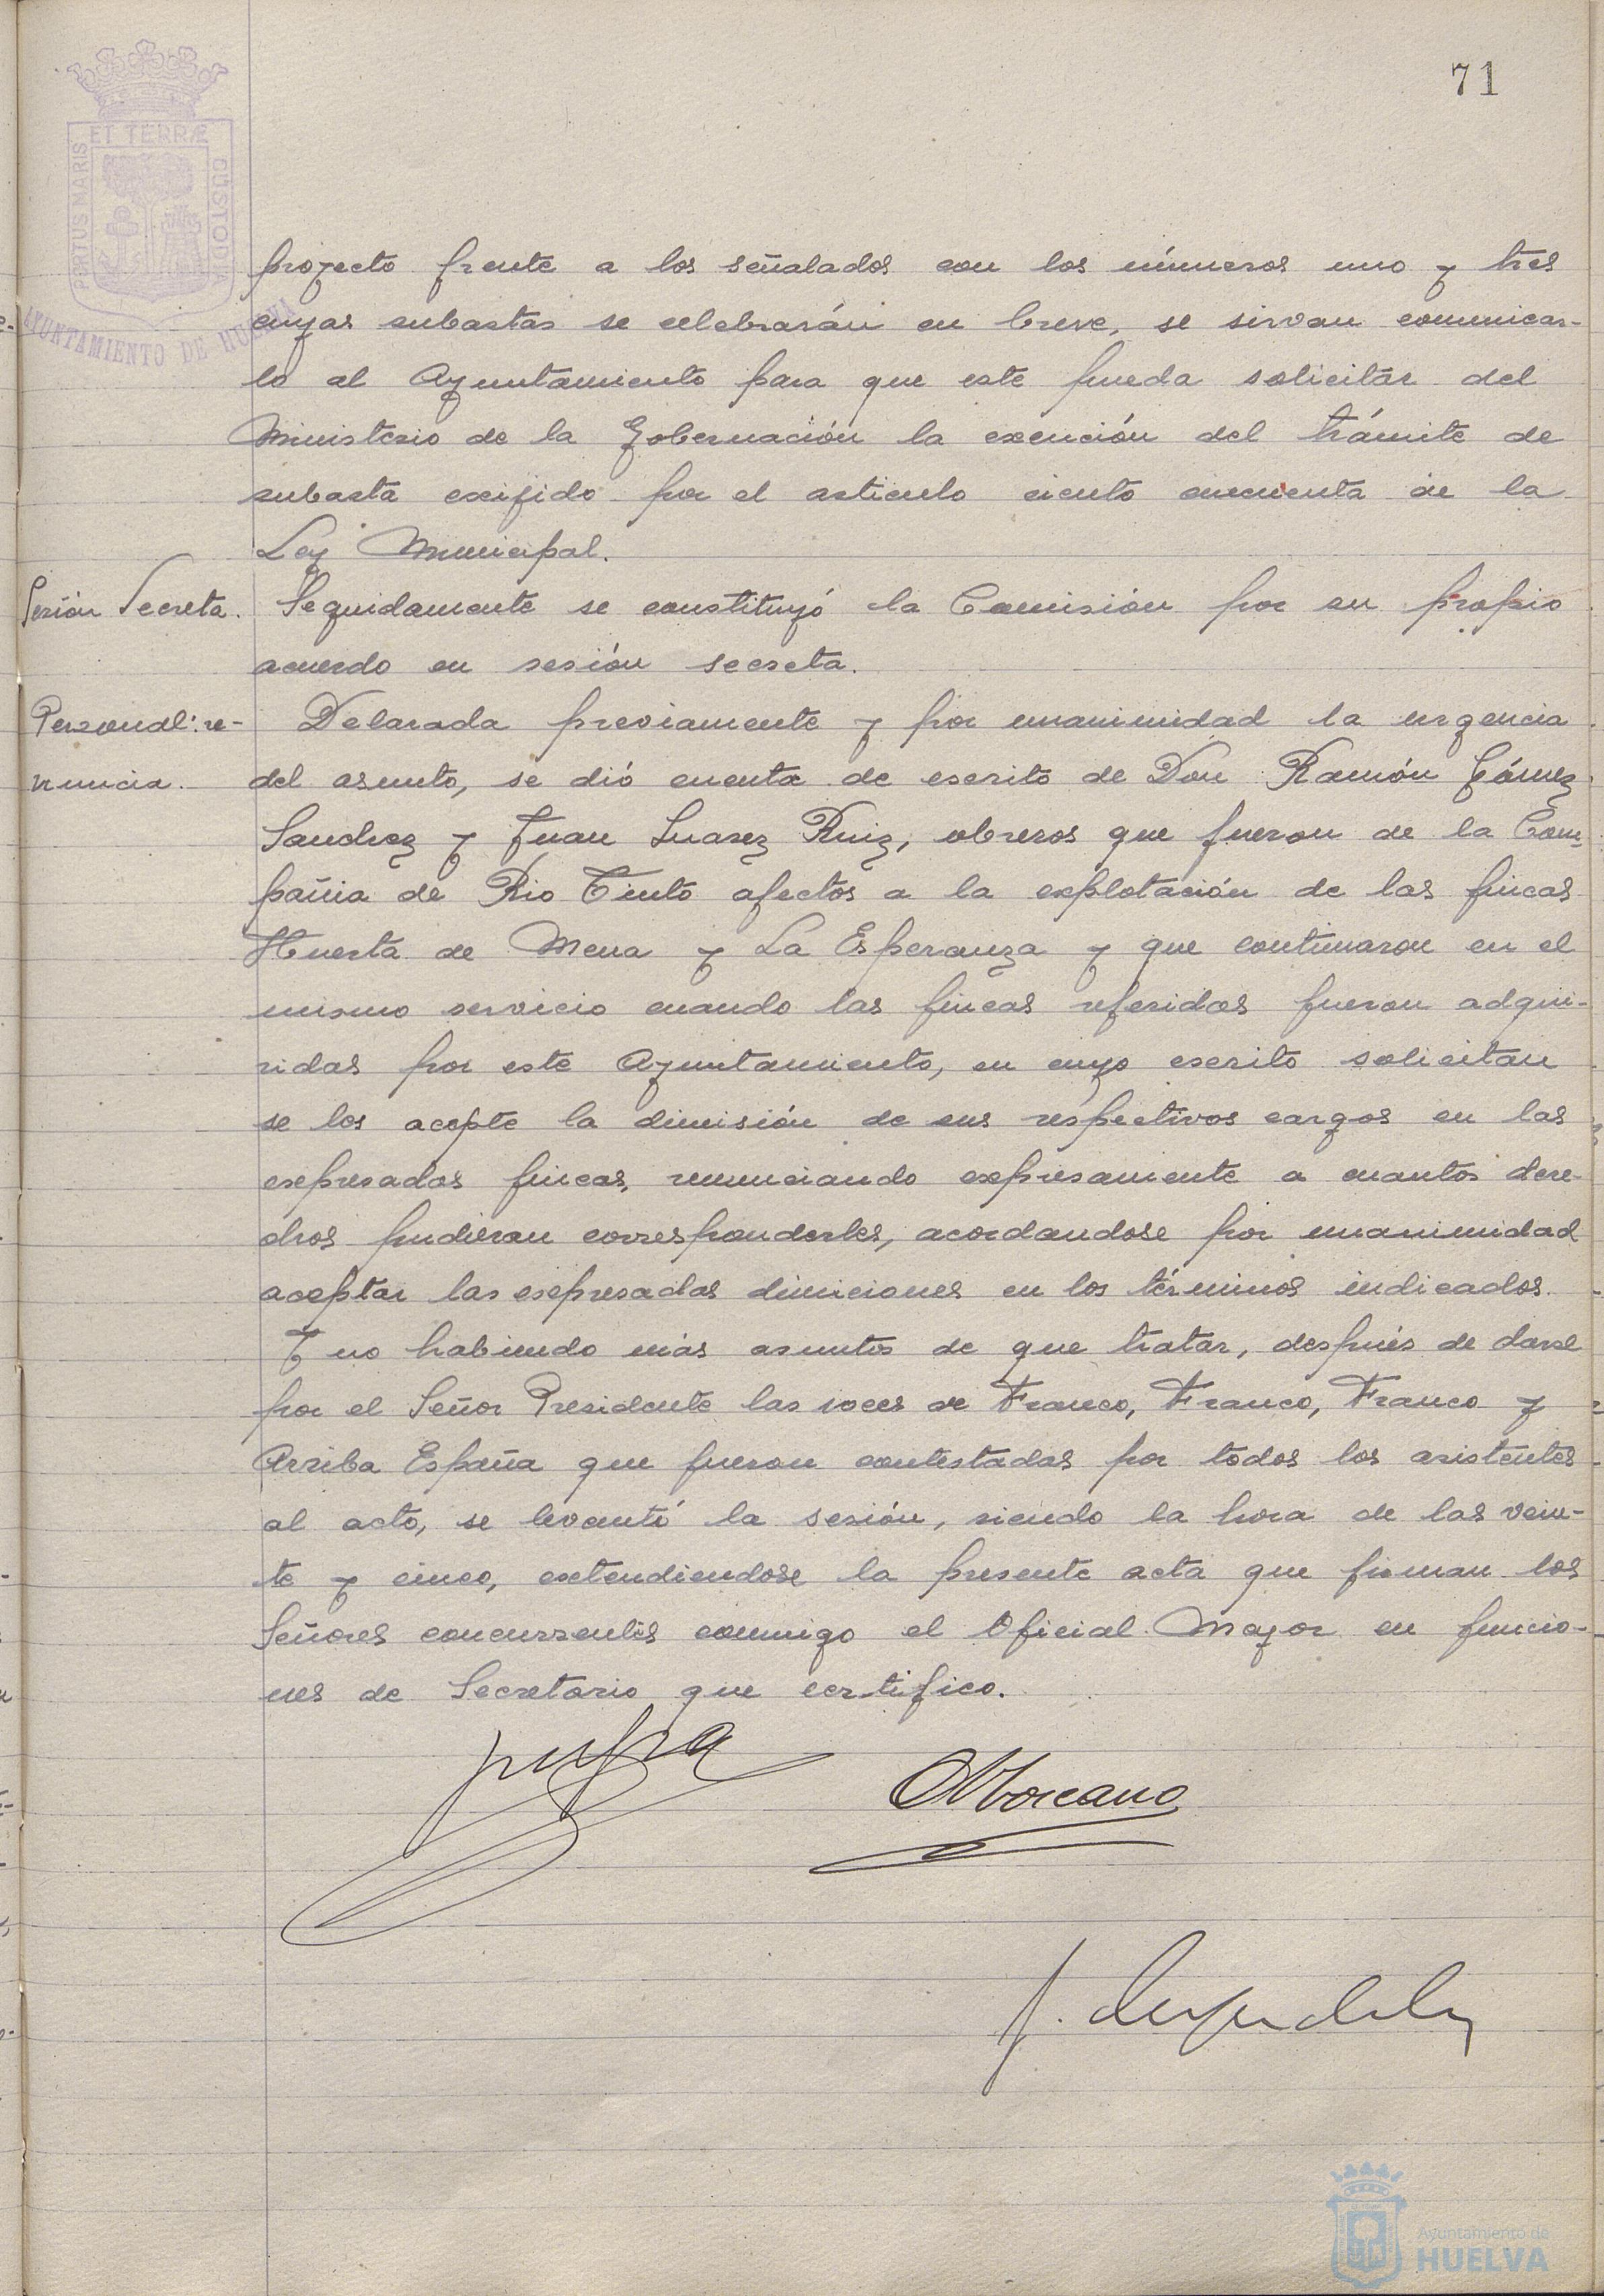 71
ET TERRÆ
PORTUS MARIS
CUSTODIA
AYUNTAMIENTO DE HUELVA
proyecto frente a los señalados con los números uno y tres
cuyas subastas se celebrarán en breve, se sirvan comunicar-
lo al Ayuntamiento para que este pueda solicitar del
Ministerio de la Gobernación la exención del trámite de
subasta exijido por el articulo ciento cincuenta de la
Ley Municipal.
Sesión Secreta. Seguidamente se constituyó la Comisión por su propio
acuerdo en sesión secreta.
Personal: re- Delarada previamente y por unanimidad la urgencia
nuncia. del asunto, se dió cuenta de escrito de Don Ramón Gómez
Sanchez y Juan Suarez Ruiz, obreros que fueron de la Com
pañia de Rio Tinto afectos a la explotación de las fincas
Huerta de Mena y La Esperanza y que continuaron en el
mismo servicio cuando las fincas referidas fueron adqui-
ridas por este Ayuntamiento, en cuyo escrito solicitan
se los acepte la dimisión de sus respectivos cargos en las
expresadas fincas, renunciando expresamente a cuantos dere-
chos pudieran corresponderles, acordandose por unanimidad
aceptar las expresadas dimiciones en los términos indicados.
Y no habiendo más asuntos de que tratar, después de darse
por el Señor Presidente las voces de Franco, Franco, Franco y
Arriba España que fueron contestadas por todos los asistentes
al acto, se levantó la sesión, siendo la hora de las vein-
te y cinco, extendiendose la presente acta que firman los
Señores concurrentes conmigo el Oficial Mayor en funcio-
nes de Secretario que certifico.
Ayuntamiento de
HUELVA